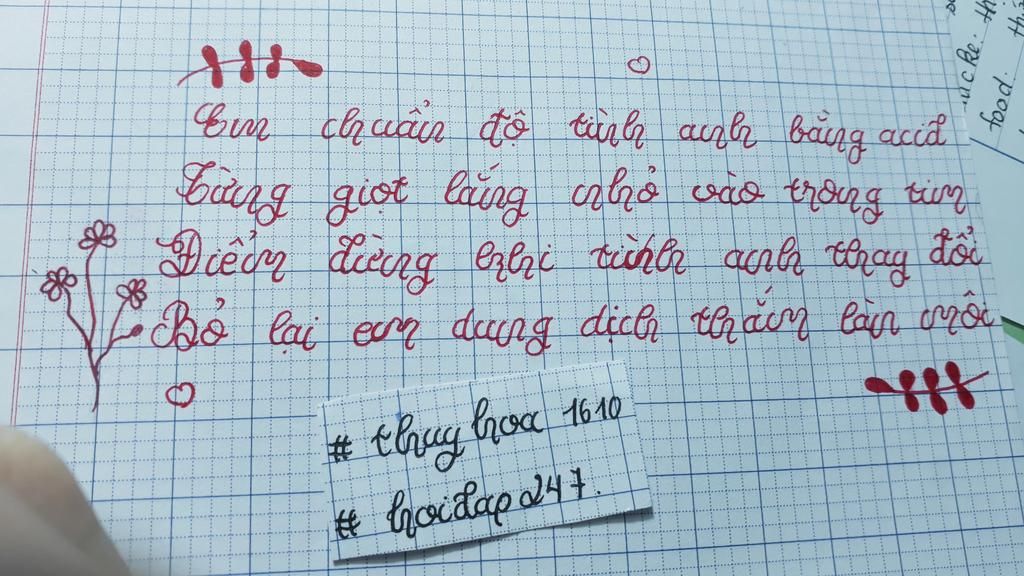 Em chuẩn độ tình anh bằng acid
Từng giọt lắng nhỏ vào trong tim
Điểm dừng khi tình anh thay đổi
Bỏ lại em dung dịch thắm làn môi
# thuy hoa 1610
# hoidap247.
food.